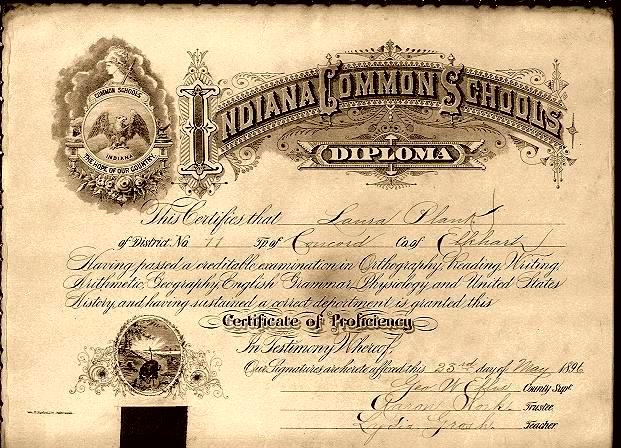 COMMON SCHOOLS
INDIANA
THE HOPE OF OUR COUNTRY
INDIANA COMMON SCHOOLS
DIPLOMA
This Certifies that Laura Plank
of District No 11 Tp of Concord Co. of Elkhart
Having passed a creditable examination in Orthography, Reading, Writing,
Arithmetic, Geography, English Grammar, Physiology and United States
History, and having sustained a correct deportment is granted this
Certificate of Proficiency
In Testimony Whereof,
Our Signatures are hereto affixed this 23rd day of May 1896
Geo W Ellis County Supt
Aaron Work Trustee
Lydia Grosh Teacher